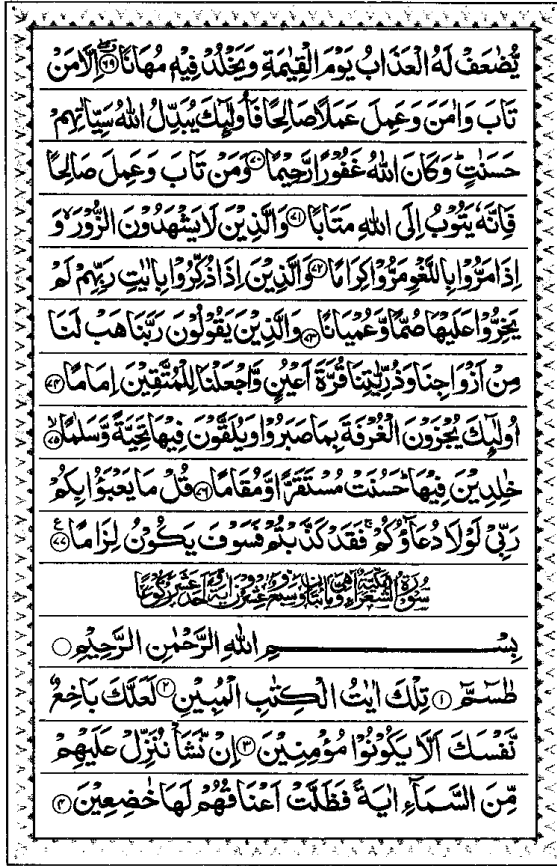 يُّضٰعَفْ لَهُ الْعَذَابُ يَوْمَ الْقِيٰمَةِ وَيَخْلُدْ فِيْهٖ مُهَانًا ۝٦٩ اِلَّا مَنْ
تَابَ وَاٰمَنَ وَعَمِلَ عَمَلًا صَالِحًا فَاُولٰٓئِكَ يُبَدِّلُ اللّٰهُ سَيِّاٰتِهِمْ
حَسَنٰتٍ ؕ وَكَانَ اللّٰهُ غَفُوْرًا رَّحِيْمًا ۝٧٠ وَمَنْ تَابَ وَعَمِلَ صَالِحًا
فَاِنَّهٗ يَتُوْبُ اِلَى اللّٰهِ مَتَابًا ۝٧١ وَالَّذِيْنَ لَا يَشْهَدُوْنَ الزُّوْرَ ۙ وَ
اِذَا مَرُّوْا بِاللَّغْوِ مَرُّوْا كِرَامًا ۝٧٢ وَالَّذِيْنَ اِذَا ذُكِّرُوْا بِاٰيٰتِ رَبِّهِمْ لَمْ
يَخِرُّوْا عَلَيْهَا صُمًّا وَّعُمْيَانًا ۝٧٣ وَالَّذِيْنَ يَقُوْلُوْنَ رَبَّنَا هَبْ لَنَا
مِنْ اَزْوَاجِنَا وَذُرِّيّٰتِنَا قُرَّةَ اَعْيُنٍ وَّاجْعَلْنَا لِلْمُتَّقِيْنَ اِمَامًا ۝٧٤
اُولٰٓئِكَ يُجْزَوْنَ الْغُرْفَةَ بِمَا صَبَرُوْا وَيُلَقَّوْنَ فِيْهَا تَحِيَّةً وَّسَلٰمًا ۙ۝٧٥
خٰلِدِيْنَ فِيْهَا ؕ حَسُنَتْ مُسْتَقَرًّا وَّمُقَامًا ۝٧٦ قُلْ مَا يَعْبَؤُا بِكُمْ
رَبِّيْ لَوْلَا دُعَآؤُكُمْ ۚ فَقَدْ كَذَّبْتُمْ فَسَوْفَ يَكُوْنُ لِزَامًا ۝٧٧ ع
سُوْرَةُ الشُّعَرَآءِ مَكِّيَّةٌ وَّهِيَ مِائَتَانِ وَسَبْعٌ وَّعِشْرُوْنَ اٰيَةً وَّاَحَدَ عَشَرَ رُكُوْعًا
بِسْـــــــمِ اللّٰهِ الرَّحْمٰنِ الرَّحِيْمِ ۝
طٰسٓمّٓ ۝١ تِلْكَ اٰيٰتُ الْكِتٰبِ الْمُبِيْنِ ۝٢ لَعَلَّكَ بَاخِعٌ
نَّفْسَكَ اَلَّا يَكُوْنُوْا مُؤْمِنِيْنَ ۝٣ اِنْ نَّشَاْ نُنَزِّلْ عَلَيْهِمْ
مِّنَ السَّمَآءِ اٰيَةً فَظَلَّتْ اَعْنَاقُهُمْ لَهَا خٰضِعِيْنَ ۝٤